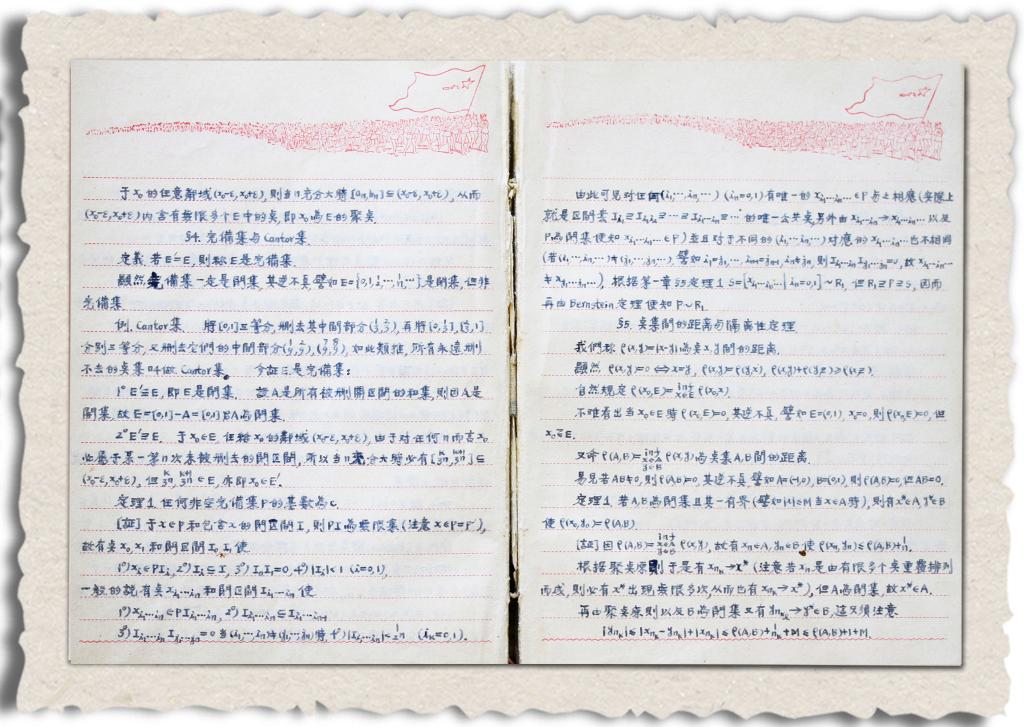 于x₀的任意鄰域(x₀-ε, x₀+ε), 則当n充分大時[aₙ,bₙ]⊆(x₀-ε, x₀+ε), 从而
(x₀-ε, x₀+ε)内含有無限多个E中的点, 即x₀為E的聚点
§4. 完備集与Cantor集
定義 若E'=E, 則称E是完備集
顯然完備集一定是閉集, 其逆不真 譬如E={0,1,½,…,1/n,…}是閉集, 但非
完備集
例. Cantor集 將[0,1]三等分, 刪去其中間部分(⅓,⅔), 再將[0,⅓],[⅔,1]
分别三等分, 又刪去它們的中間部分(1/9,2/9),(7/9,8/9), 如此類推, 所有永遠刪
不去的点集叫做Cantor集. 今証E是完備集:
1° E'⊆E, 即E是閉集. 設A是所有被刪開區間的和集, 則因A是
開集, 故E=[0,1]-A=[0,1]为閉集.
2° E'⊇E. 于x₀∈E, 任給x₀的鄰域(x₀-ε, x₀+ε), 由于对任何n而言x₀
必屬于某一第n次未被刪去的閉區間, 所以当n充分大時必有[k/3ⁿ, k+1/3ⁿ]⊆
(x₀-ε, x₀+ε), 但k/3ⁿ, k+1/3ⁿ∈E, 亦即x₀∈E'.
定理1. 任何非空完備集P的基数為c.
[証] 于x∈P和包含x的開區間I, 則PI為無限集(注意x∈P=P'),
故有点x₀,x₁和閉區間I₀,I₁使
1°) xᵢ∈PIᵢ, 2°) Iᵢ⊆I, 3°) I₀I₁=0, 4°) |Iᵢ|<1 (i=0,1),
一般的説, 有点x_{i₁…iₙ}和閉區間I_{i₁…iₙ}使
1°) x_{i₁…iₙ}∈PI_{i₁…iₙ}, 2°) I_{i₁…iₙ}⊆I_{i₁…iₙ₋₁}
3°) I_{i₁…iₙ}I_{j₁…jₙ}=0 当(i₁,…iₙ)≠(j₁,…jₙ)時 4°) |I_{i₁…iₙ}|<1/2ⁿ (iₖ=0,1).
由此可見对任何(i₁,…,iₙ,…) (iₙ=0,1)有唯一的x_{i₁…iₙ…}∈P与之相應(实際上
就是区間套I_{i₁}⊇I_{i₁i₂}⊇…⊇I_{i₁…iₙ}⊇…的唯一公共点, 另外由x_{i₁…iₙ}→x_{i₁…iₙ…}以及
P為閉集便知x_{i₁…iₙ…}∈P)並且对于不同的(i₁,…iₙ,…)对應的x_{i₁…iₙ…}也不相同
(若(i₁,…iₙ,…)≠(j₁,…jₙ,…), 譬如i₁=j₁,… iₙ₋₁=jₙ₋₁, iₙ≠jₙ, 則I_{i₁…iₙ}I_{j₁…jₙ}=0, 故x_{i₁…iₙ…}
≠x_{j₁…jₙ…}). 根据第一章§5定理1 S={x_{i₁…iₙ…}|iₙ=0,1}~R₁, 但R₁⊇P⊇S, 因而
再由Bernstein定理便知P~R₁
§5. 点集間的距离与隔离性定理
我們称ρ(x,y)=|x-y|為点x,y間的距离.
顯然ρ(x,y)=0⇔x=y, ρ(x,y)=ρ(y,x), ρ(x,y)+ρ(y,z)≥ρ(x,z).
自然規定ρ(x₀,E)=inf_{x∈E} ρ(x₀,x).
不难看出当x₀∈E時ρ(x₀,E)=0, 其逆不真, 譬如E=(0,1), x₀=0, 則ρ(x₀,E)=0, 但
x₀∉E.
又命ρ(A,B)=inf_{x∈A, y∈B} ρ(x,y)為点集A,B間的距离.
易見若AB≠0, 則ρ(A,B)=0, 其逆不真, 譬如A=(-1,0), B=(0,1), 則ρ(A,B)=0, 但AB=0.
定理1. 若A,B為閉集且其一有界(譬如|x|≤M当x∈A時), 則有x*∈A, y*∈B
使ρ(x₀,y₀)=ρ(A,B).
[証] 因ρ(A,B)=inf_{x∈A, y∈B} ρ(x,y), 故有xₙ∈A, yₙ∈B使ρ(xₙ,yₙ)≤ρ(A,B)+1/n.
根据聚点原則于是有x_{nₖ}→x* (注意若xₙ是由有限多个点重覆排列
而成, 則必有x*出現無限多次, 从而也有x_{nₖ}→x*), 但A為閉集, 故x*∈A.
再由聚点原則以及B為閉集又有y_{nₖ}→y*∈B, 這只須注意
|y_{nₖ}|≤|x_{nₖ}-y_{nₖ}|+|x_{nₖ}|≤ρ(A,B)+1/nₖ+M≤ρ(A,B)+1+M.